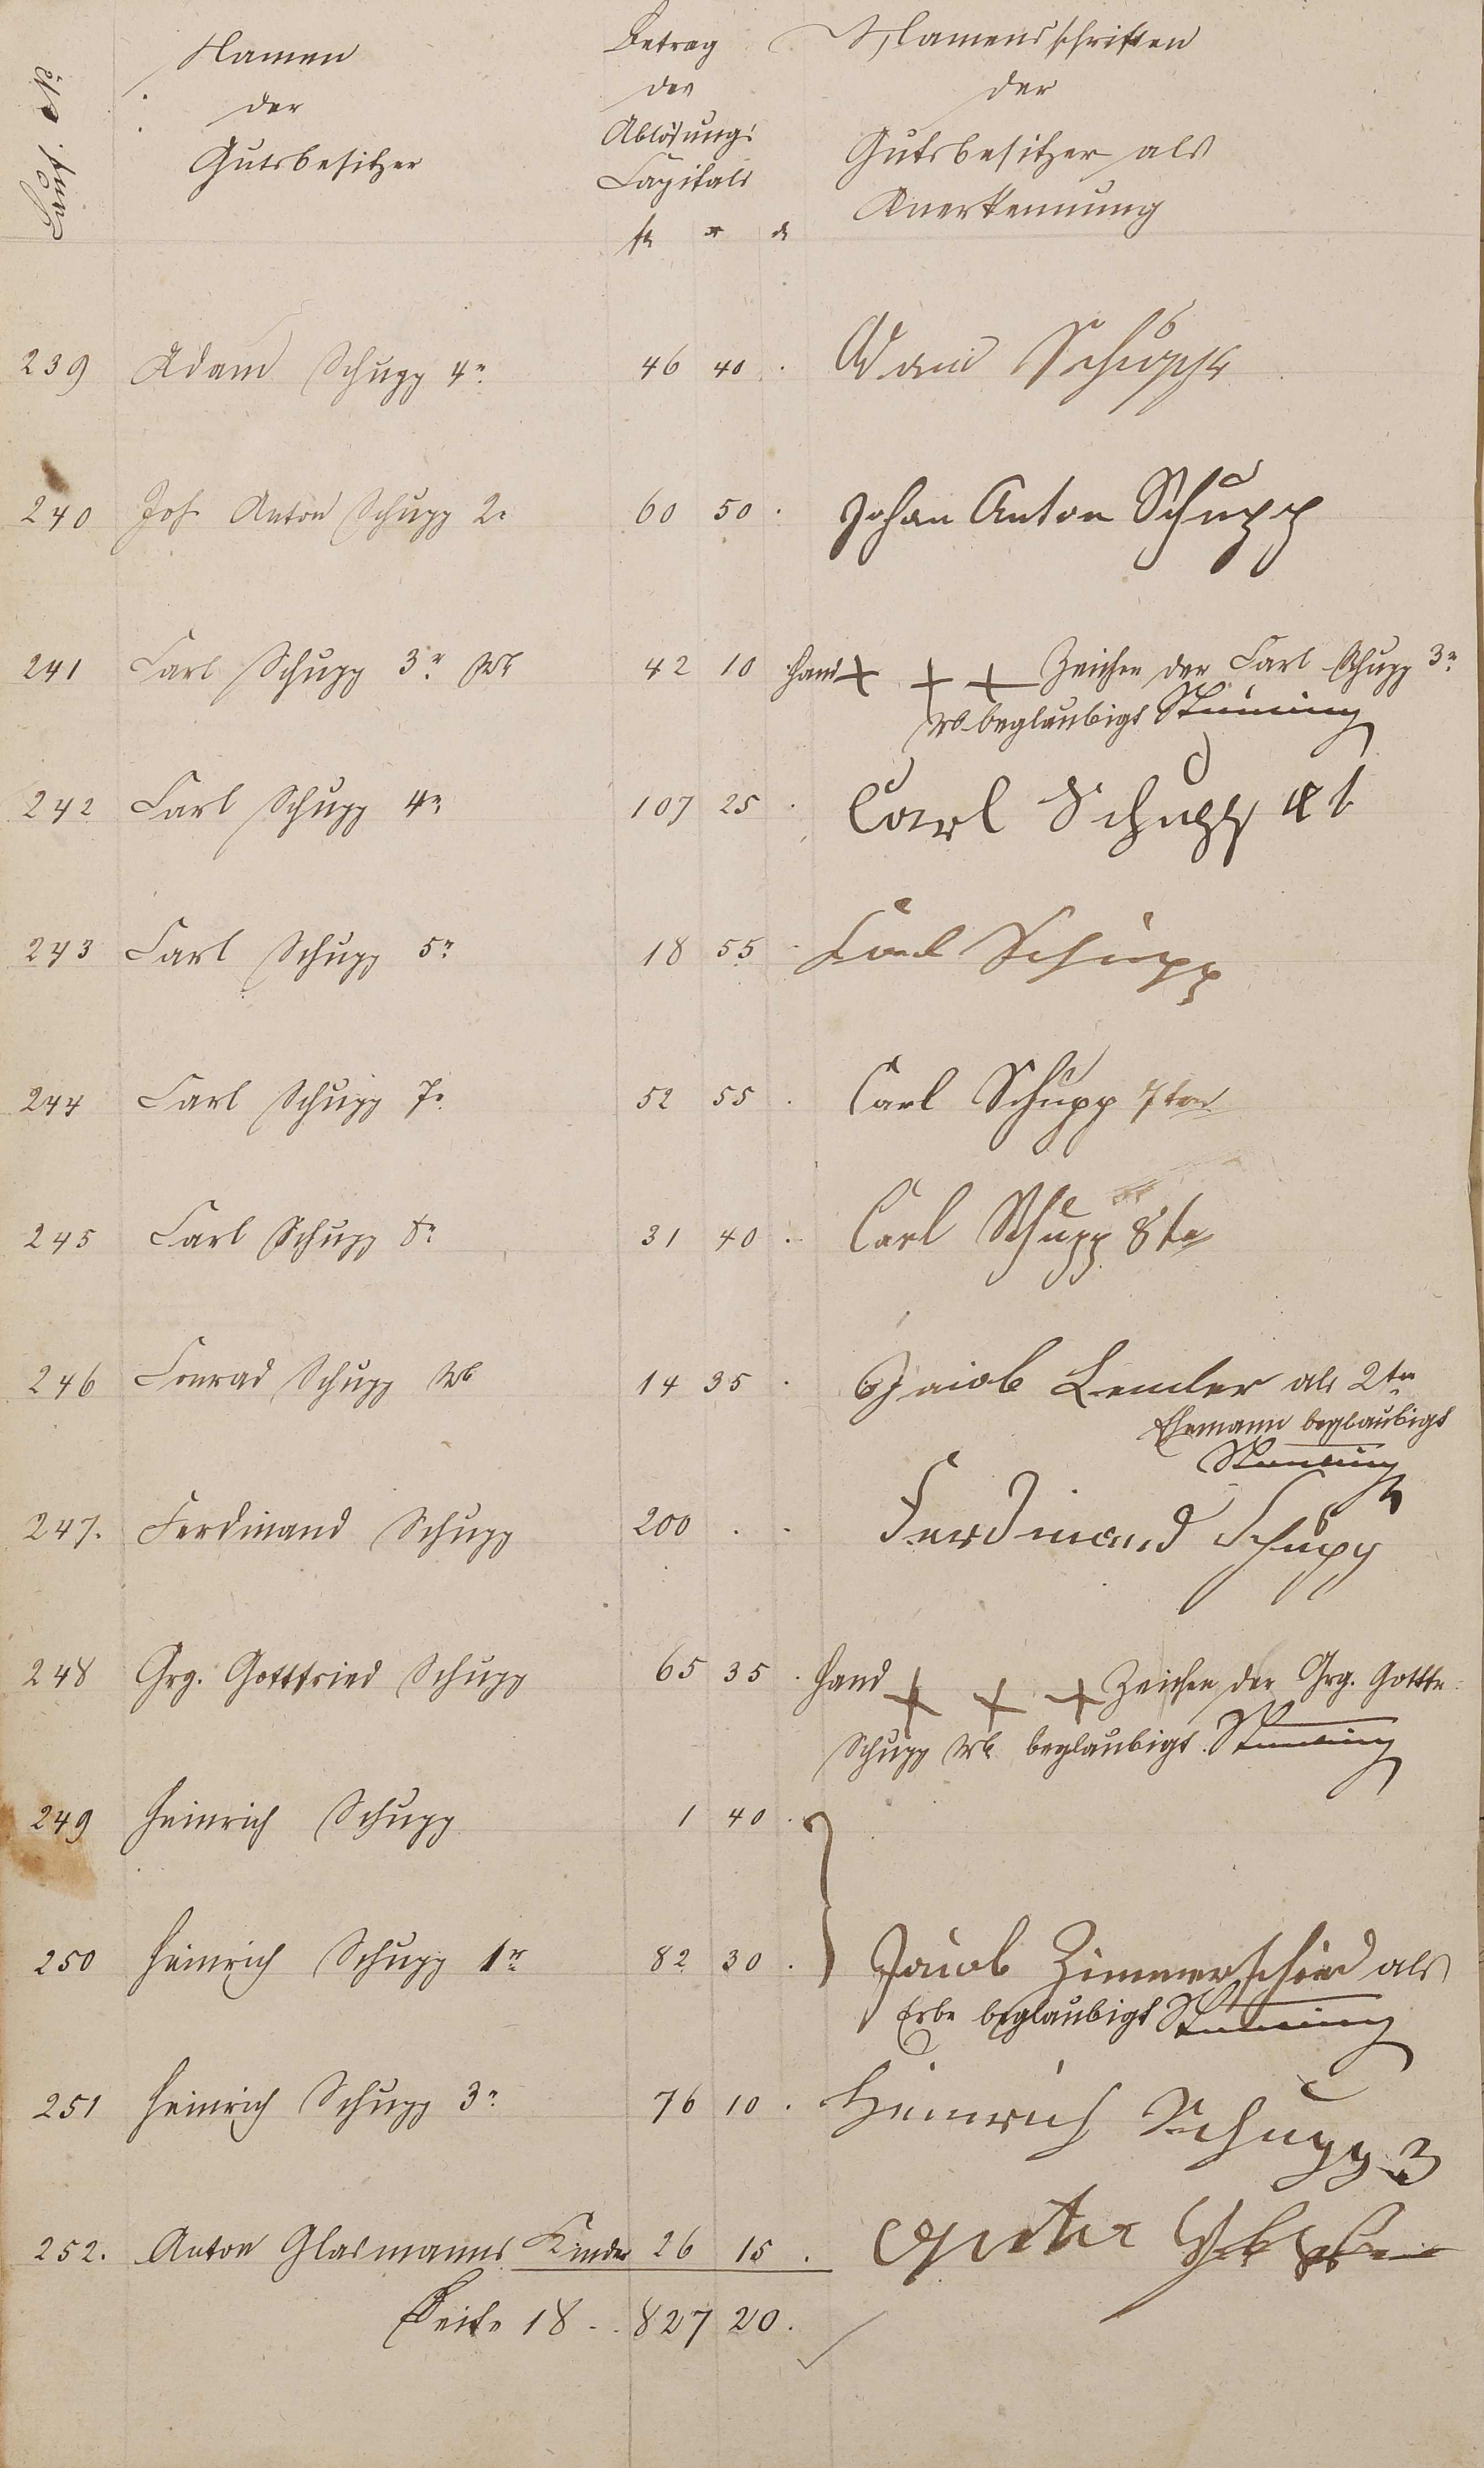 Namen Betrag Namensschriften
der des der
Gutsbesitzer Ablösungs Gutsbesitzer als
Capitals Anerkennung
fl xr d
239 Adam Schupp 4r 46 40 . Adam Schupp
240 Joh Anton Schupp 2r 60 50 . Johan Anton Schupp
241 Carl Schupp 3r Wb 42 10 Hand + + + Zeichen der Carl Schupp 3r
Wb beglaubigt
242 Carl Schupp 4r 107 25 . Carl Schupp 4t
243 Carl Schupp 5r 18 55 . Carl Schupp
244 Carl Schupp 7r 52 55 . Carl Schupp 7ter
245 Carl Schupp 8r 31 40 . Carl Schupp 8te
246 Conrad Schupp Wb 14 35 . Jacob Lemler als 2ter
Ehemann beglaubigt
247. Ferdinand Schupp 200 . . Ferdinand Schupp
248 Grg. Gottfried Schupp 65 35 . Hand + + + Zeichen der Grg. Gottfr.
Schupp Wb beglaubigt
249 Heinrich Schupp 1 40 .
250 Heinrich Schupp 1r 82 30 . Jacob Zimmerschied als
Erbe beglaubigt
251 Heinrich Schupp 3r 76 10 . Heinrich Schupp 3
252. Anton Glasmanns Kinder 26 15 .
Seite 18 . . 827 20 .